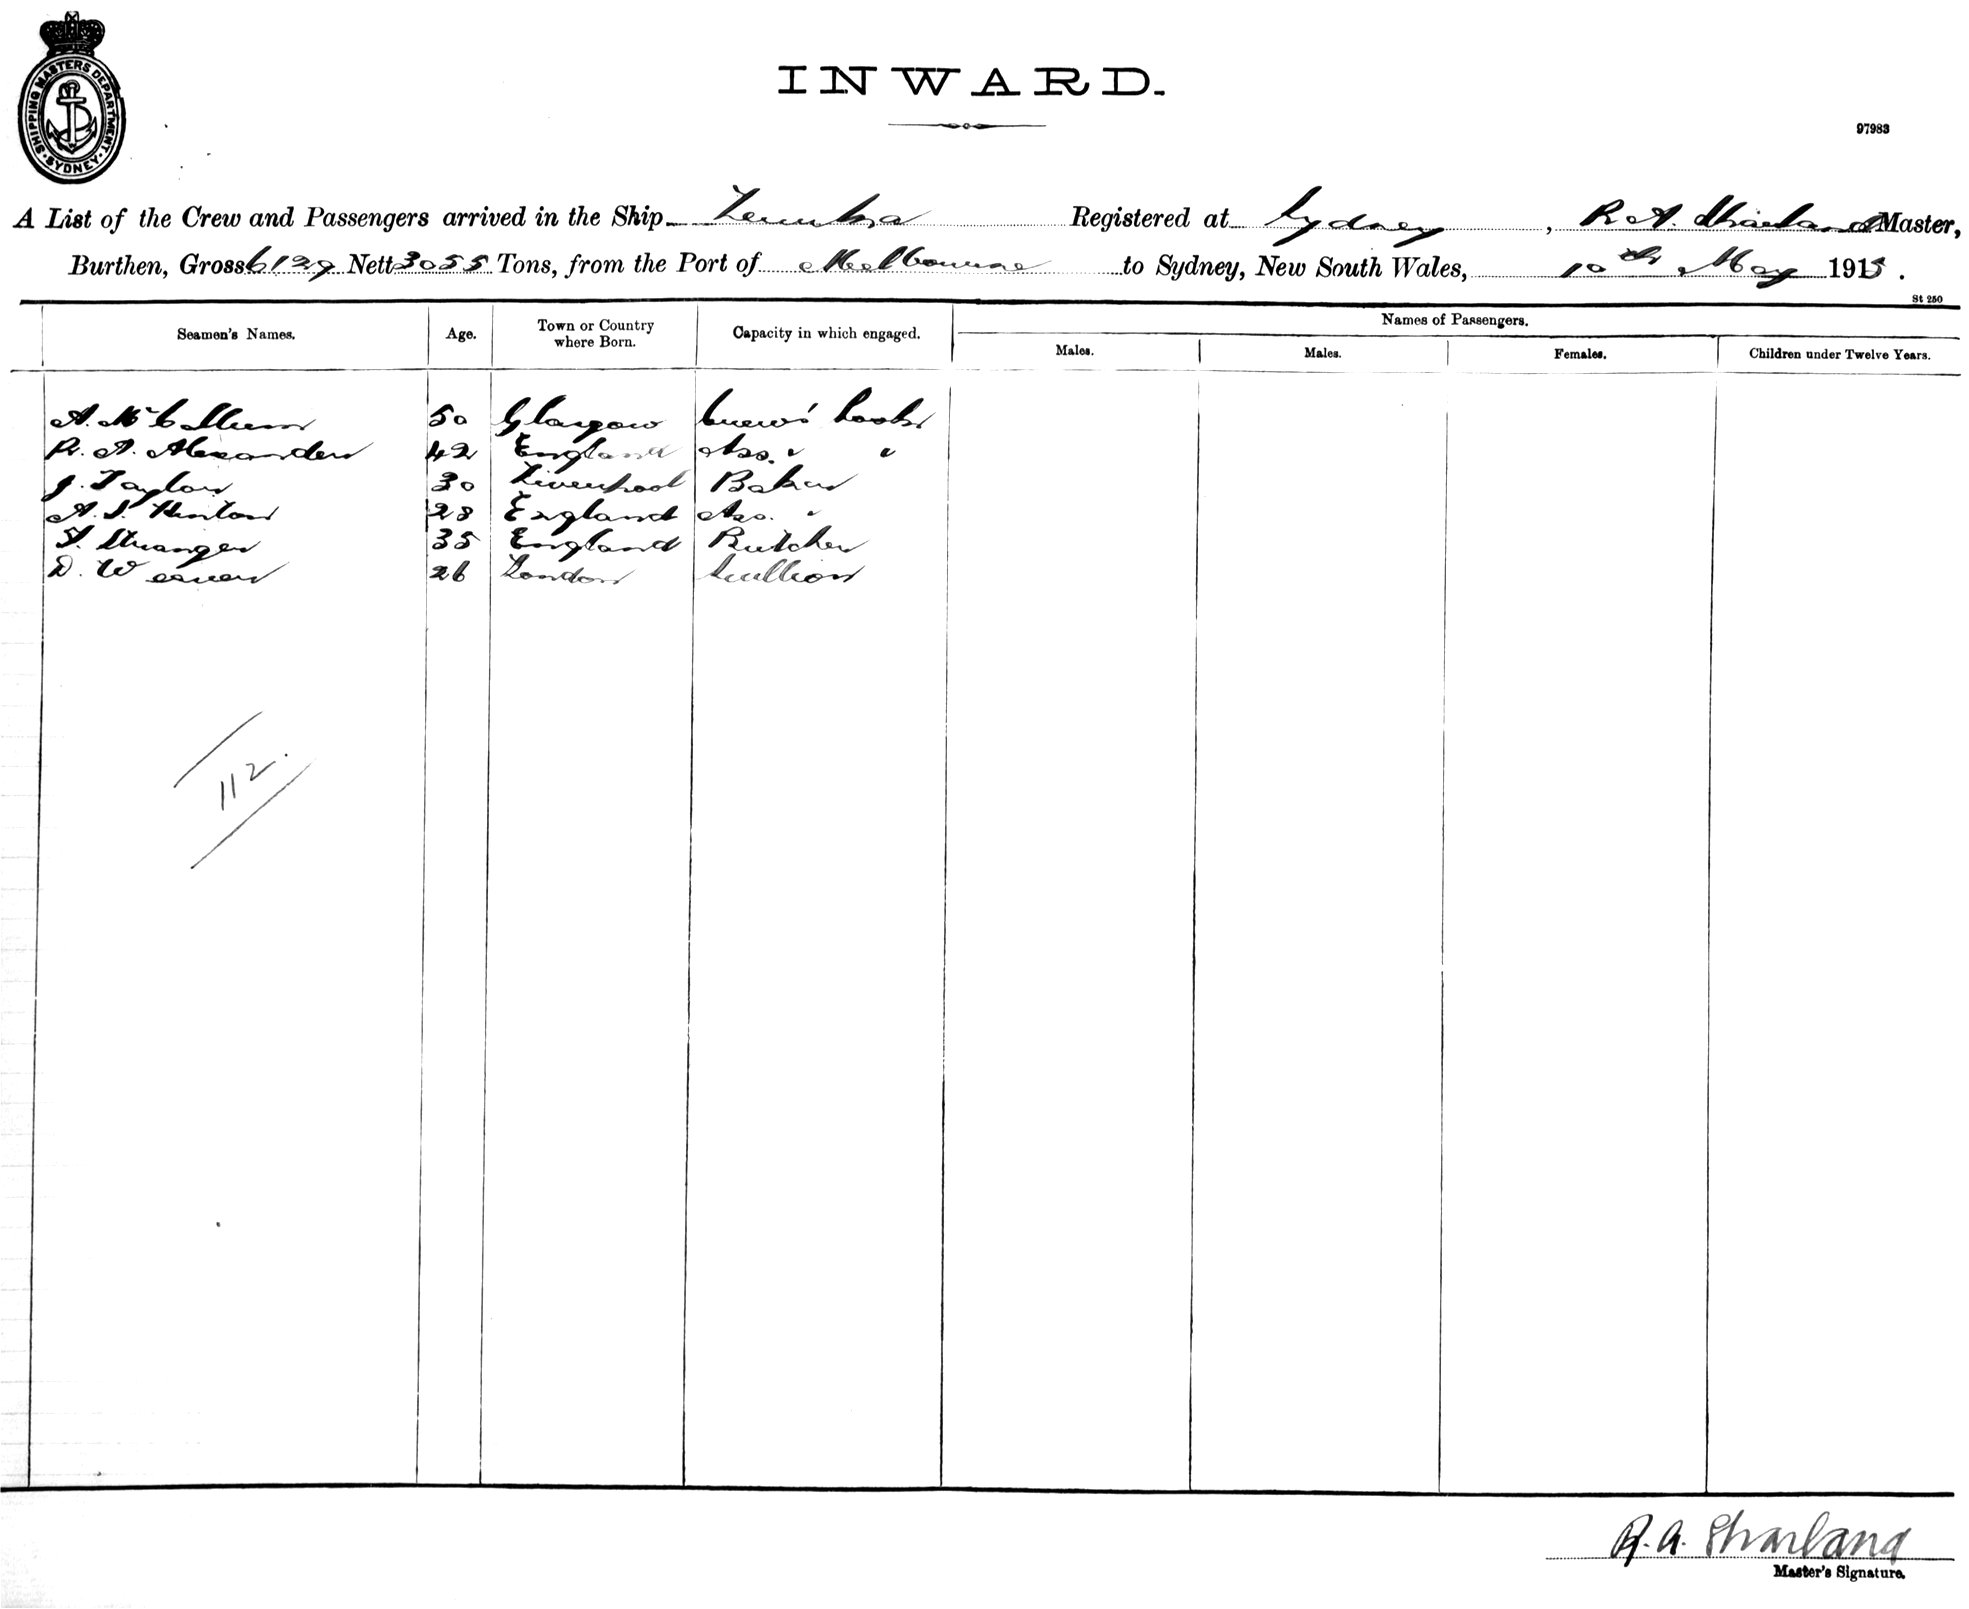 SHIPPING MASTERS DEPARTMENT. SYDNEY
INWARD.
97983
A List of the Crew and Passengers arrived in the Ship Zealandia Registered at Sydney, R. A. Sharland Master,
Burthen, Gross 6129 Nett 3055 Tons, from the Port of Melbourne to Sydney, New South Wales, 10th May 1915.
St 250
Seamen's Names. Age. Town or Country where Born. Capacity in which engaged. Names of Passengers.
Males. Males. Females. Children under Twelve Years.
A. McCallum 50 Glasgow Crew's Cook
R. A. Alexander 42 England Ass. " "
J. Taylor 30 Liverpool Baker
A. J. Hinton 28 England Ass. "
Stranger 35 England Butcher
D. Weaver 26 London Scullion
112.
R. A. Sharland
Master's Signature.